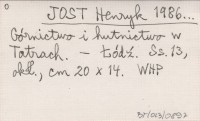 0
JOST Henryk 1986...
Górnictwo i hutnictwo w
Tatrach. - Łódź. Ss. 13,
okł., cm 20 x 14. WHP